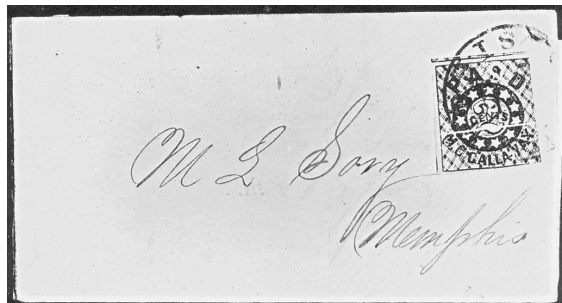 TS
PAID
5
CENTS
M. C. CALLAWAY
M L Sory
Memphis